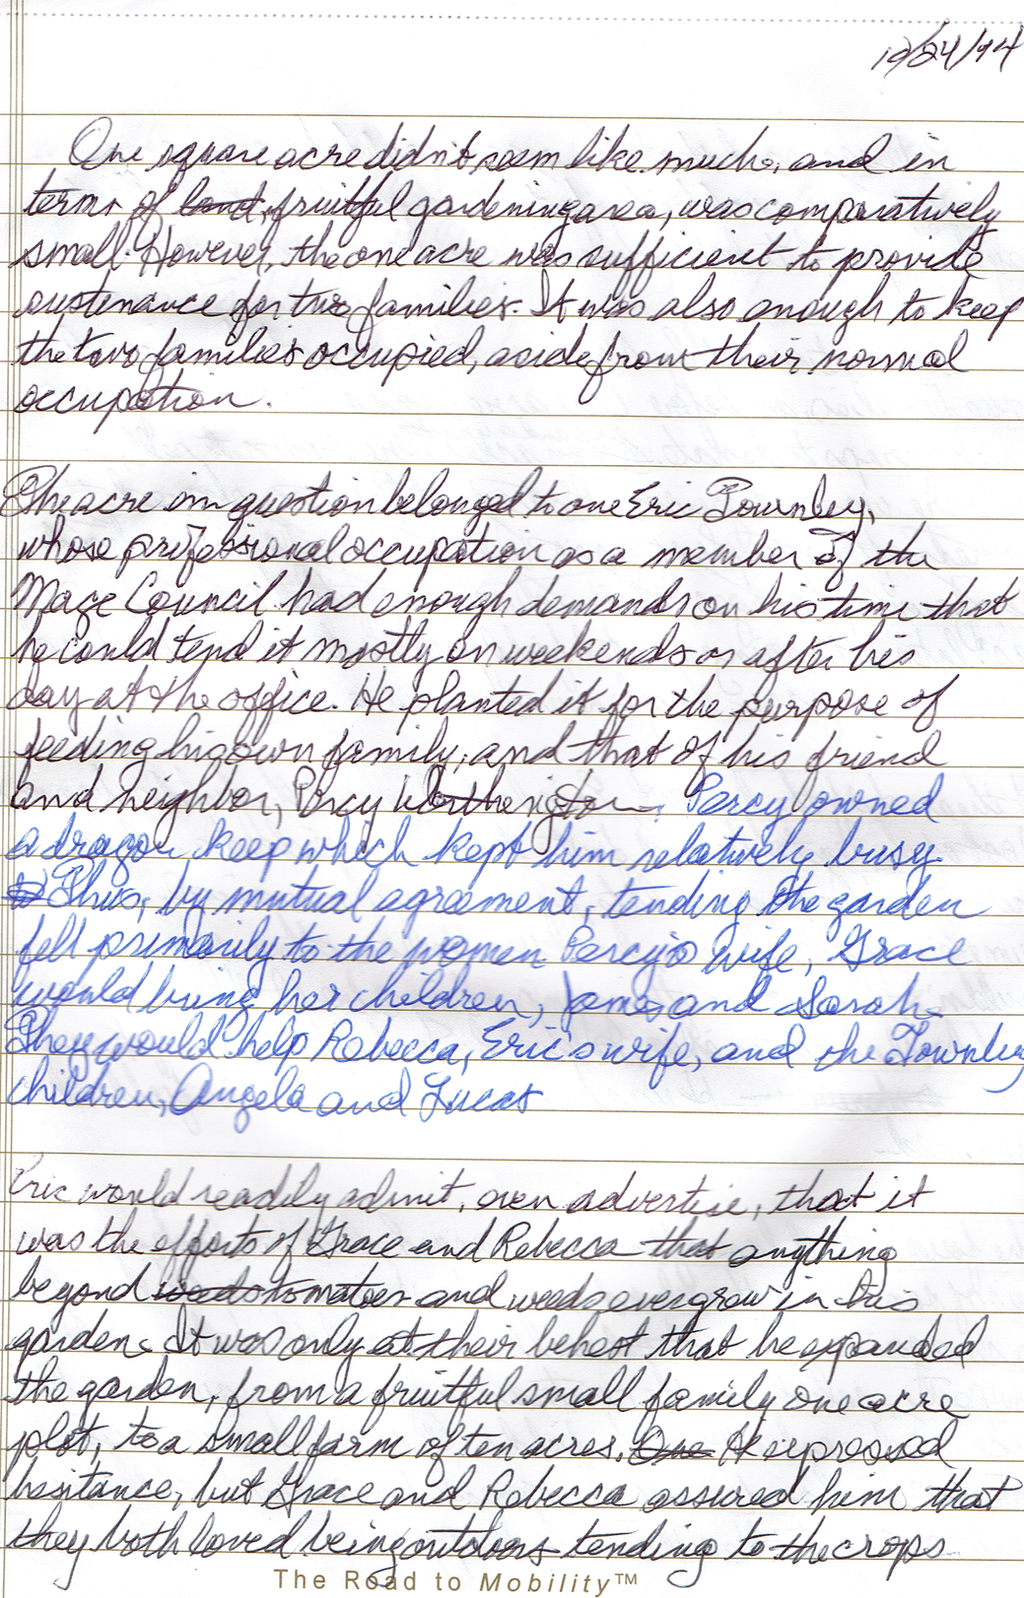 10/24/94
One square acre didn't seem like much, and in
terms of land, fruitful gardening area, was comparatively
small. However, the one acre was sufficient to provide
sustenance for two families. It was also enough to keep
the two families occupied, aside from their normal
occupation.
The acre in question belonged to one Eric Townley,
whose professional occupation as a member of the
Mage Council had enough demands on his time that
he could tend it mostly on weekends or after his
day at the office. He planted it for the purpose of
feeding his own family, and that of his friend
and neighbor, Percy Worthington. Percy owned
a dragon keep which kept him relatively busy.
Thus, by mutual agreement, tending the garden
fell primarily to the women. Percy's wife, Grace
would bring her children, James and Sarah.
They would help Rebecca, Eric's wife, and the Townley
children, Angela and Lucas
Eric would readily admit, even advertise, that it
was the efforts of Grace and Rebecca that anything
beyond weeds tomatoes and weeds overgrow in this
garden. It was only at their behest that he expanded
the garden, from a fruitful small family one acre
plot, to a small farm of ten acres. One He expressed
hesitance, but Grace and Rebecca assured him that
they both loved being outdoors tending to the crops
The Road to Mobility™